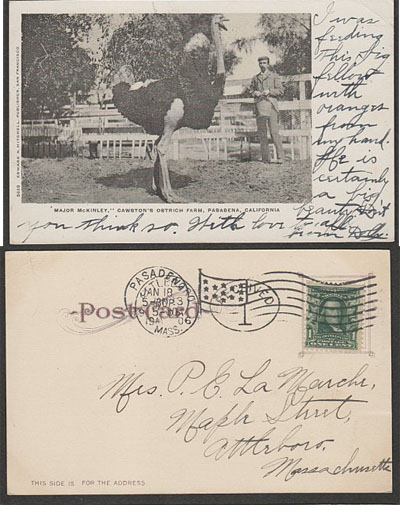 I was
feeding
this big
fellow
with
oranges
from
my hand.
He is
certainly
a big
beauty. Don't
you think so. With love to all
from
"MAJOR McKINLEY," CAWSTON'S OSTRICH FARM, PASADENA, CALIFORNIA
EDWARD H. MITCHELL, PUBLISHER, SAN FRANCISCO.
PASADENA
JAN 18
MASS.
RECEIVED
1
Post Card
Mrs. P. E. La Marche,
Maple Street,
Attleboro,
Massachusetts
THIS SIDE IS FOR THE ADDRESS